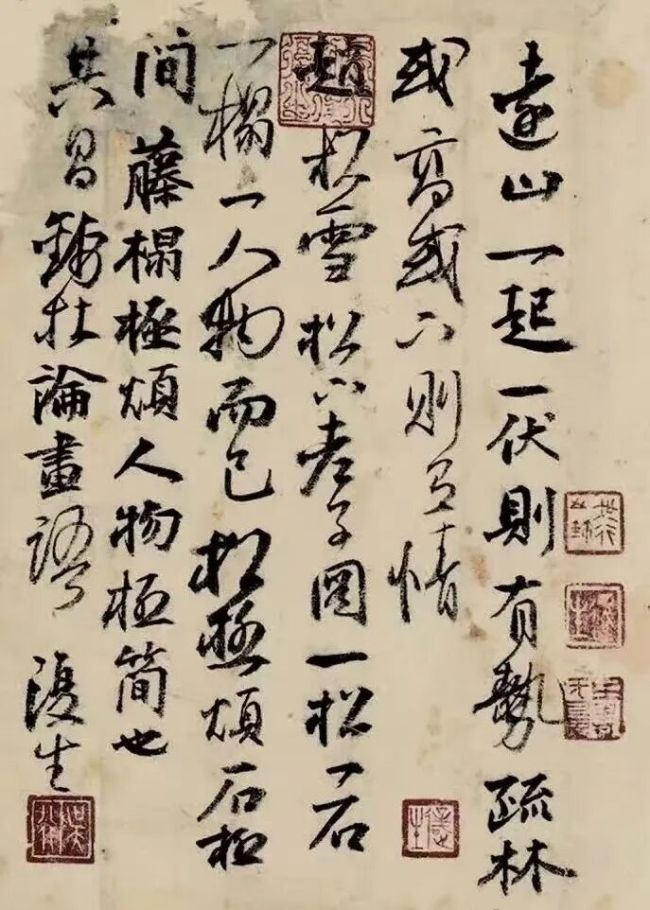 遠山一起一伏則有勢疏林
或高或下則有情
趙松雪松下老子圖一松一石
一榻一人物而已松極煩石極
間藤榻極煩人物極簡也
其昌論畫語 復生